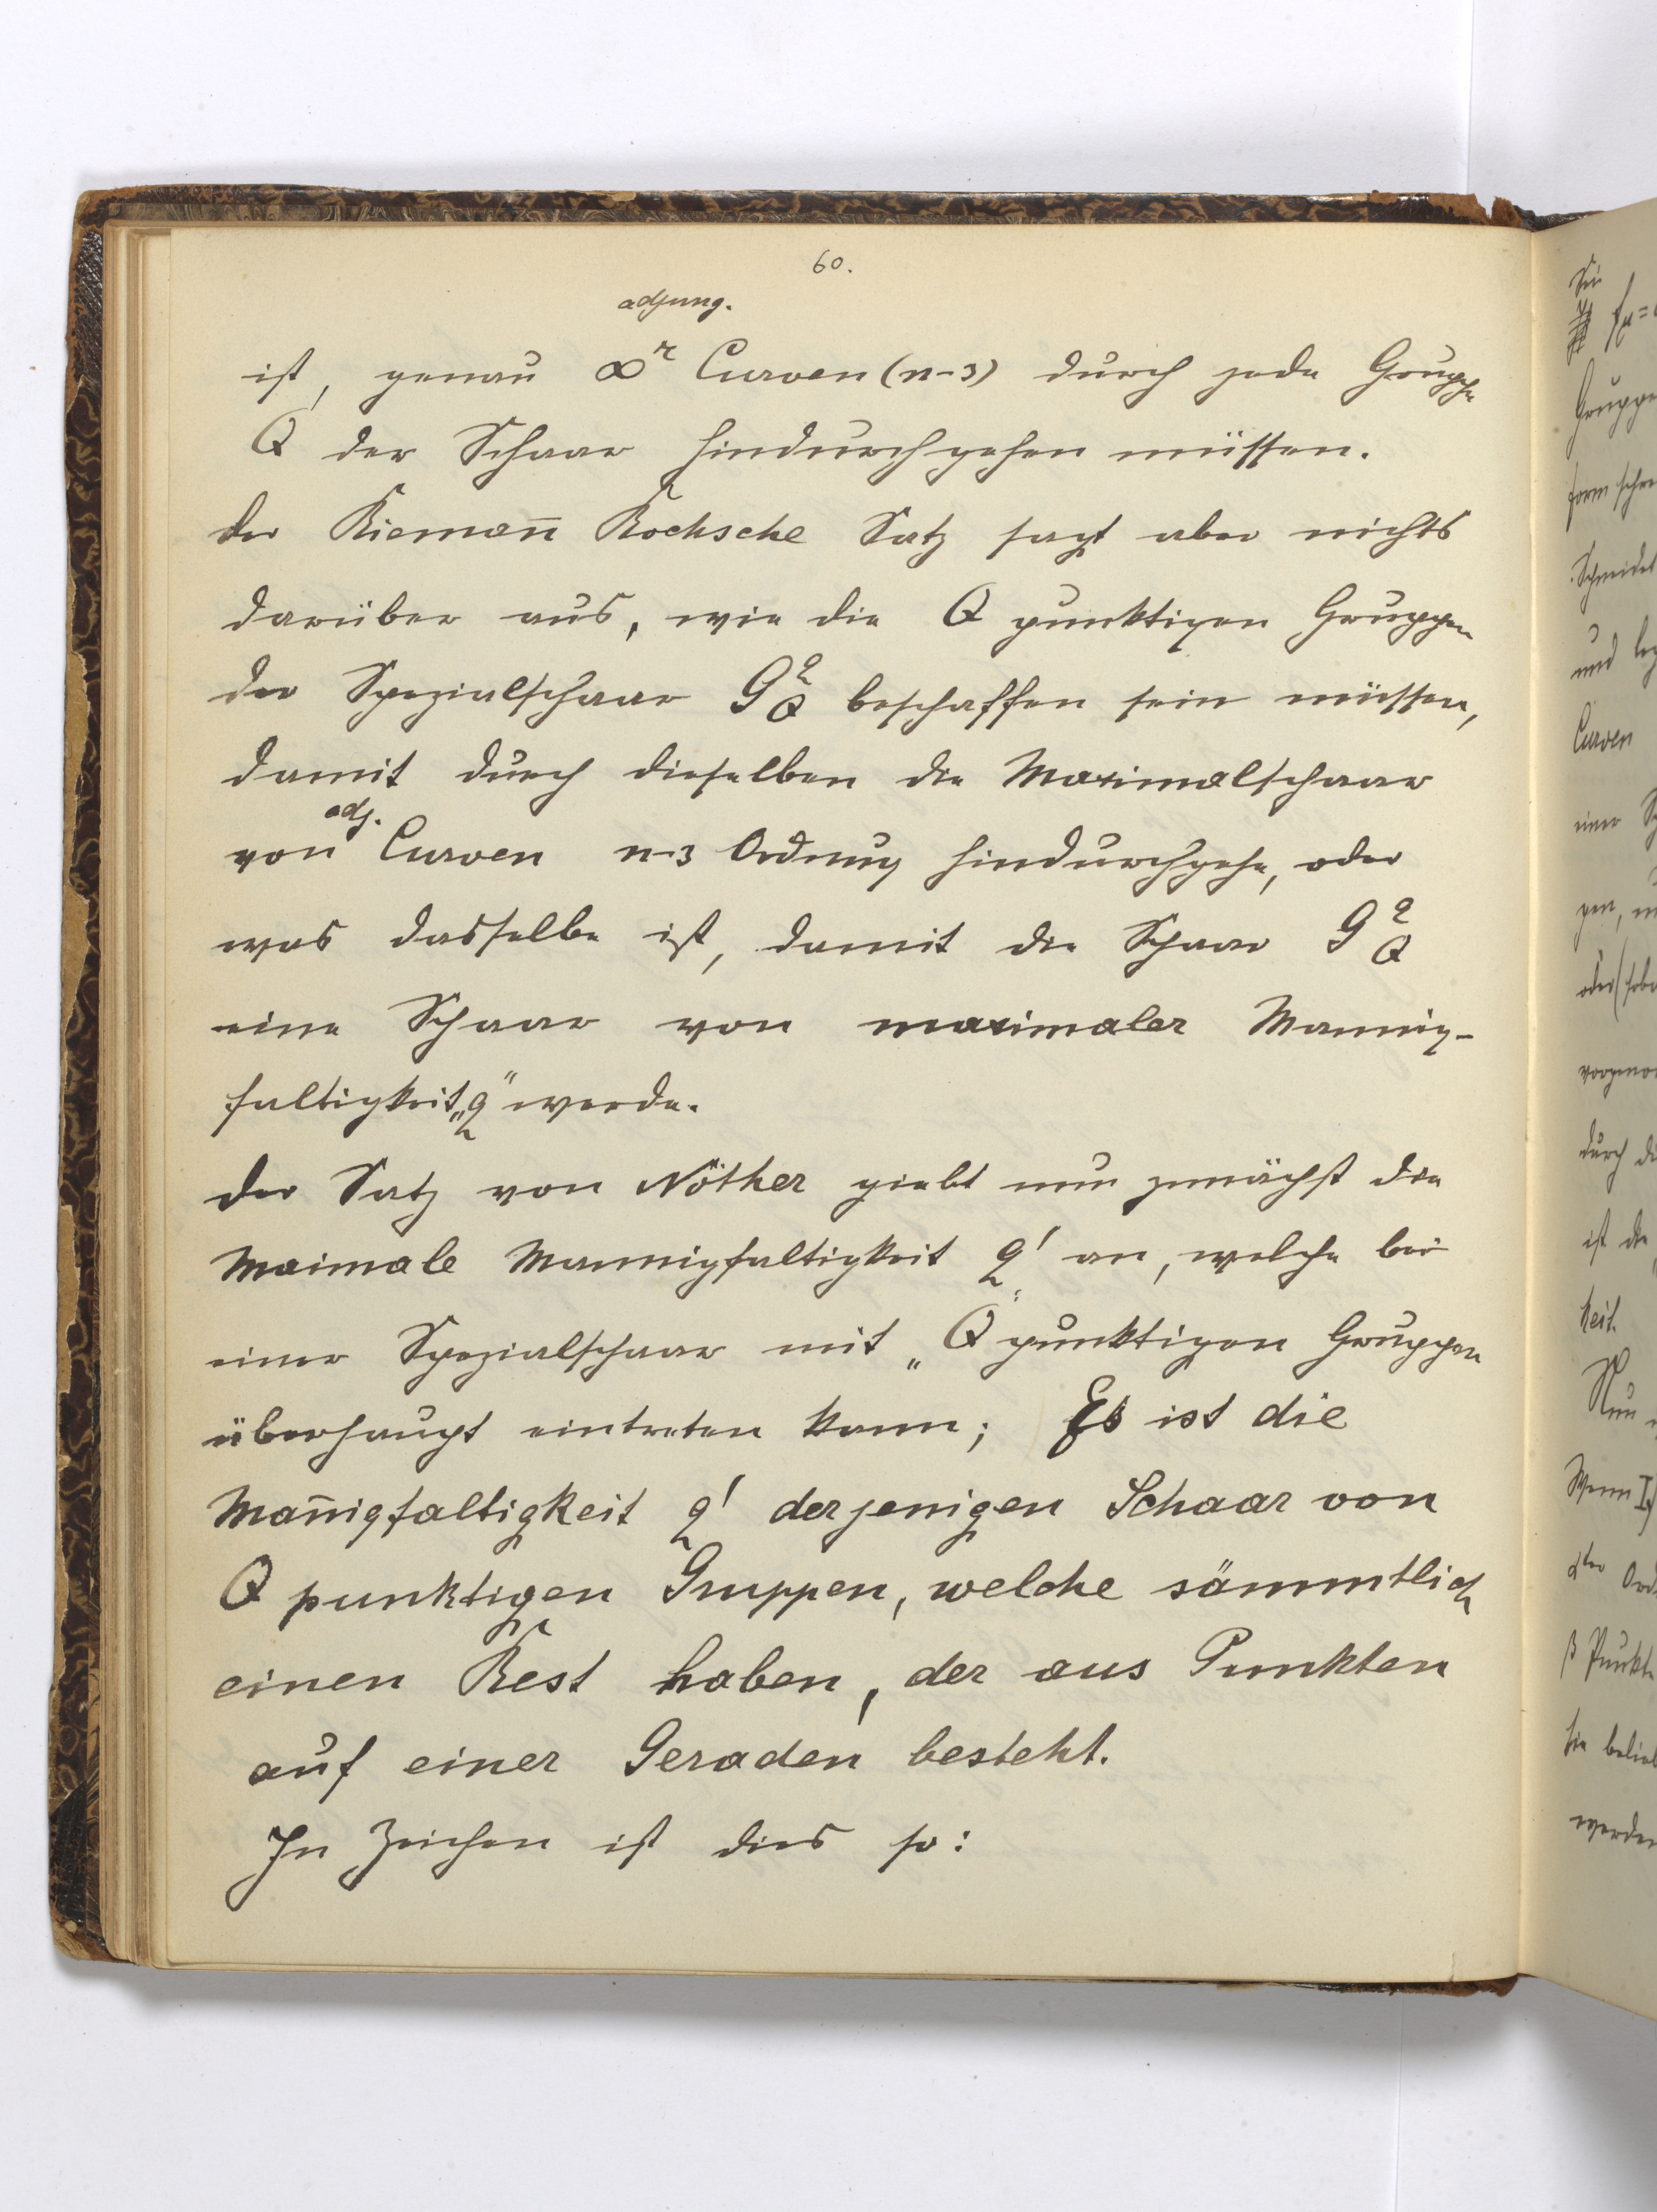 60.
adjung.
ist, genau ∞^r Curven (n-3) durch jede Gruppe
Q der Schaar hindurchgehen müssen.
Der Riemañ Rochsche Satz sagt aber nichts
darüber aus, wie die Q punktigen Gruppen
der Spezialschaar G_Q^q beschaffen sein müssen,
damit durch dieselben die Maximalschaar
adj.
von Curven n-3 Ordnung hindurchgehe, oder
was dasselbe ist, damit die Schaar G_Q^q
eine Schaar von maximaler Mannig-
faltigkeit „q“ werde.
Der Satz von Nöther giebt nun zunächst die
Maimale Mannigfaltigkeit q' an, welche bei
einer Spezialschaar mit „Q“ punktigen Gruppen
überhaupt eintreten kann; Es ist die
Mañigfaltigkeit q' derjenigen Schaar von
Q punktigen Gruppen, welche sämmtlich
einen Rest haben, der aus Punkten
auf einer Geraden besteht.
In Zeichen ist dies so:
Sei
Gruppe
Schneidet
und
Curven
einer
gen,
oder
durch
ist die
keit.
Nun
Wenn I)
β Punkte
werden